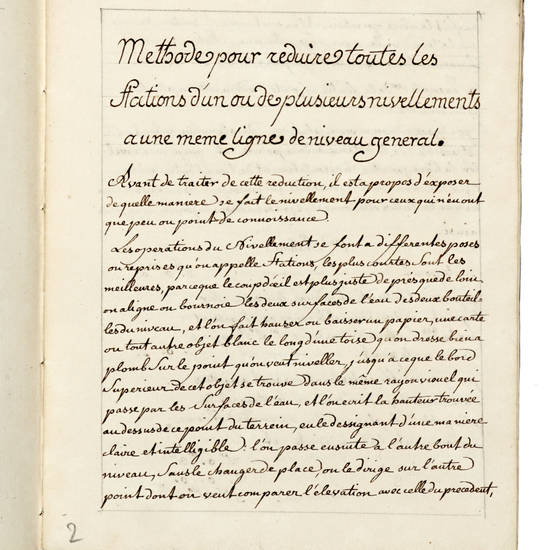 Methode pour reduire toutes les
stations d'un ou de plusieurs nivellements
a une meme ligne de niveau general.
Avant de traiter de cette reduction, il est a propos d'exposer
de quelle maniere se fait le nivellement pour ceux qui n'en ont
que peu ou point de connoissance
Les operations du Nivellement se font a differentes poses
ou reprises qu'on appelle stations, les plus courtes sont les
meilleures, parceque le coup d'œil est plus juste de près que de loin
on aligne ou bournoie les deux surfaces de l'eau des deux bouteil-
les du niveau, et l'on fait hausser ou baisser un papier, une carte
ou tout autre objet blanc le long d'une toise qu'on dresse bien a
plomb sur le point qu'on veut niveller, jusqu'a ce que le bord
Superieur de cet objet se trouve dans le même rayon visuel qui
passe par les surfaces de l'eau, et l'on ecrit la hauteur trouvée
au dessus de ce point du terrein, en le dessignant d'une maniere
claire et intelligible: l'on passe ensuite à l'autre bout du
niveau, sans le changer de place, on le dirige sur l'autre
point dont on veut comparer l'élevation avec celle du precedent,
2